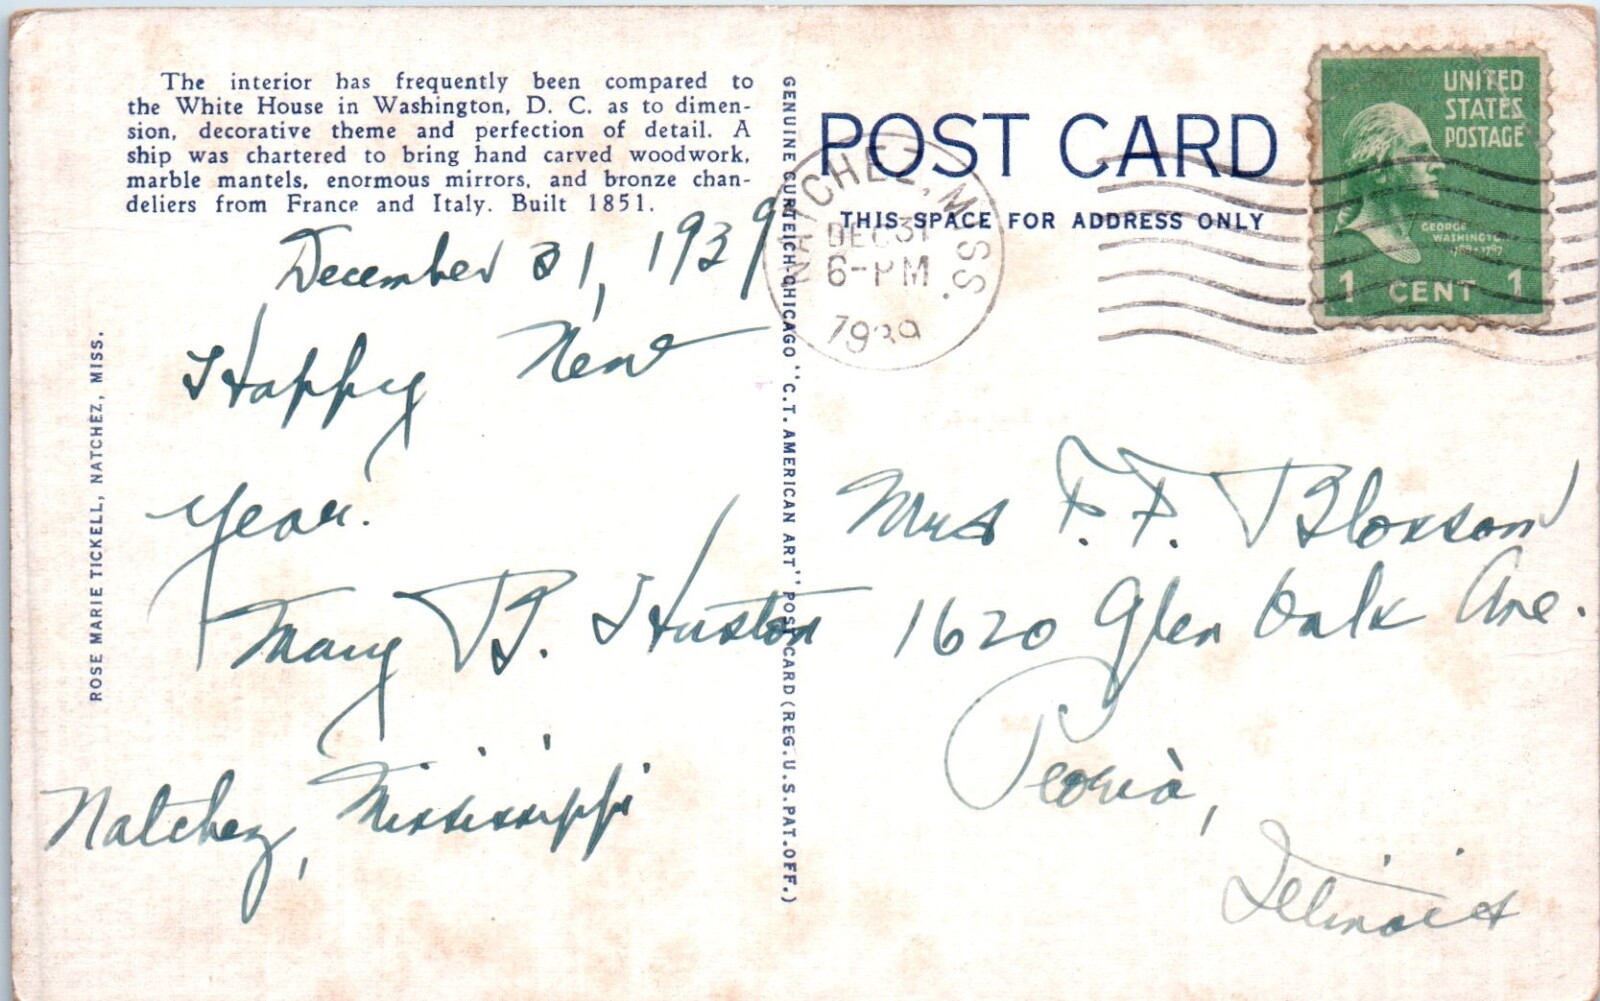 The interior has frequently been compared to
the White House in Washington, D. C. as to dimen-
sion, decorative theme and perfection of detail. A
ship was chartered to bring hand carved woodwork,
marble mantels, enormous mirrors, and bronze chan-
deliers from France and Italy. Built 1851.
December 31, 1939
Happy New
Year.
Mary B. Huston
Natchez, Mississippi
ROSE MARIE TICKELL, NATCHEZ, MISS.
GENUINE CURTEICH-CHICAGO "C.T. AMERICAN ART" POST CARD (REG. U.S. PAT. OFF.)
POST CARD
THIS SPACE FOR ADDRESS ONLY
NATCHEZ, MISS.
DEC 31
6-PM
1939
UNITED
STATES
POSTAGE
GEORGE
WASHINGTON
1789-1797
1 CENT 1
Mrs F. F. Bloxsom
1620 Glen Oak Ave.
Peoria,
Illinois